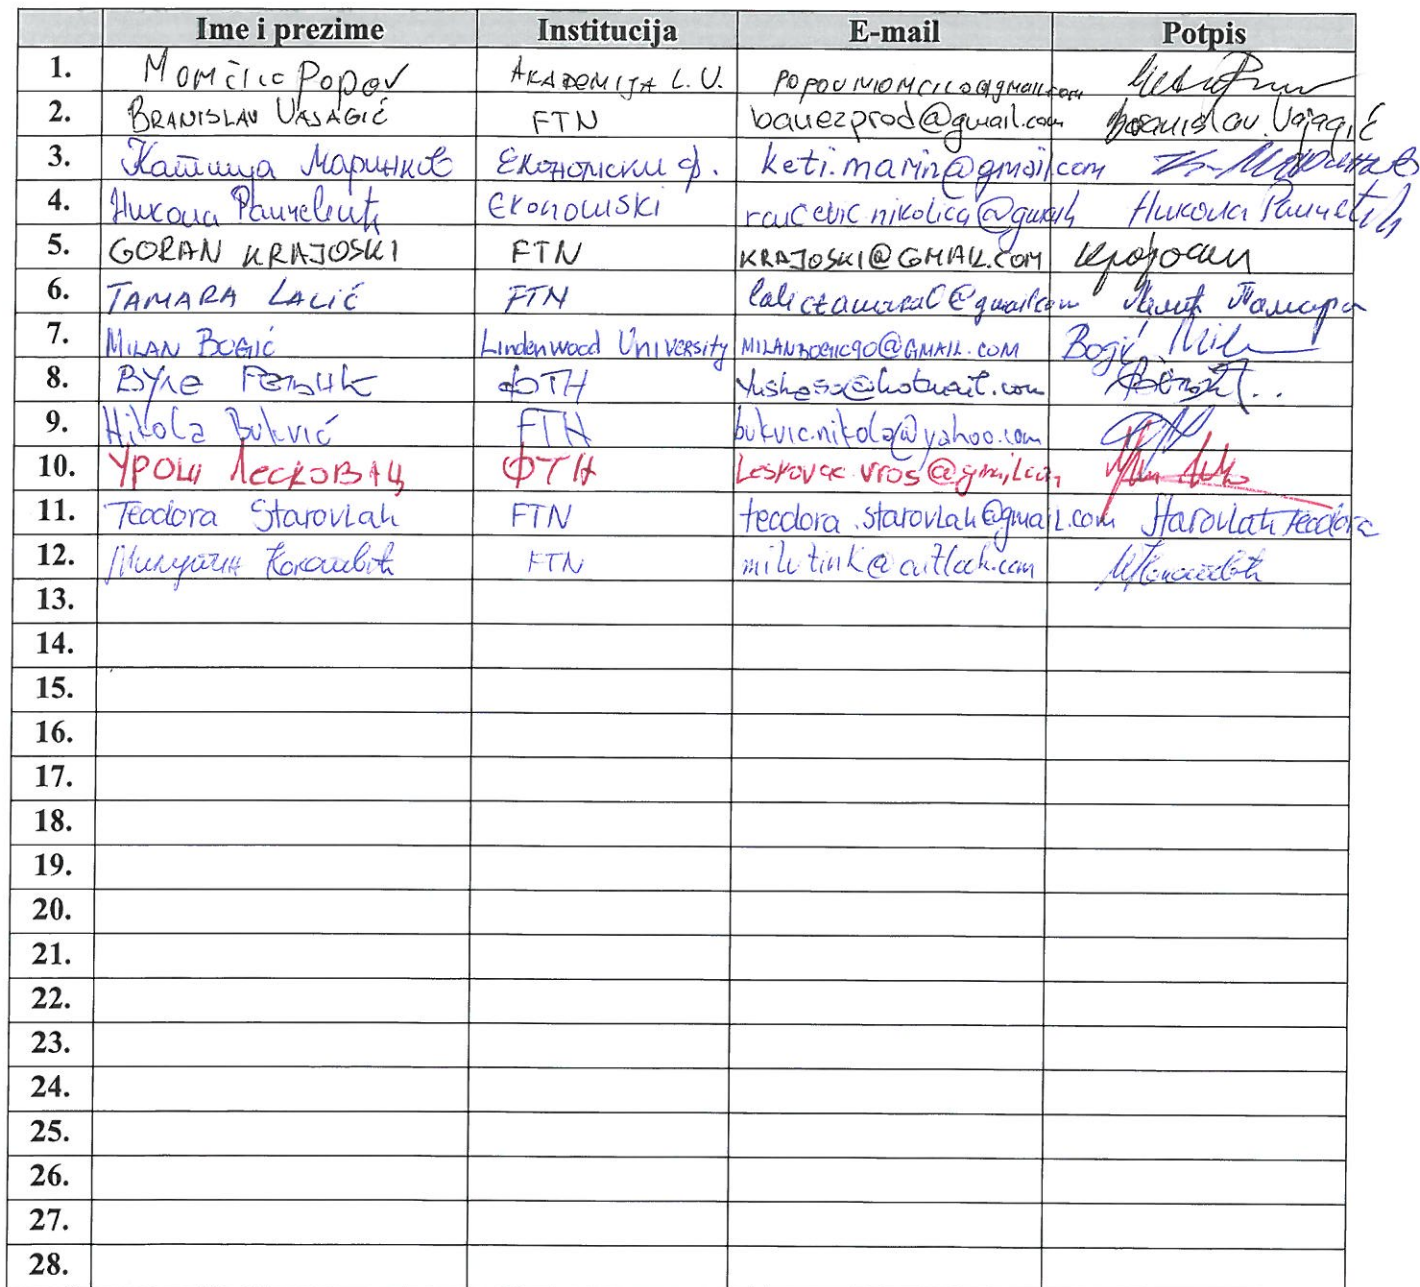 Ime i prezime Institucija E-mail Potpis
1. Momčilo Popov AKADEMIJA L.U. popovmomcilo@gmail.com
2. BRANISLAV VAJAGIĆ FTN banezprod@gmail.com Branislav Vajagić
3. Катица Маринков Економски ф. keti.marin@gmail.com
4. Никола Раичевић Ekonomski raicevic.nikolica@gmail Никола Раичевић
5. GORAN KRAJOSKI FTN KRAJOSKI@GMAIL.COM Крајоски
6. TAMARA LALIĆ FTN Лалић Тамара
7. MILAN BOGIĆ Lindenwood University MILANBOGIC90@GMAIL.COM Bogić Milan
8. Вуле ФТН
9. Nikola Bukvić FTN bukvic.nikola@yahoo.com
10. УРОШ ЛЕСКОВАЦ ФТН
11. Teodora Starovlah FTN teodora.starovlah@gmail.com Starovlah Teodora
12. Милутин FTN milutink@outlook.com
13.
14.
15.
16.
17.
18.
19.
20.
21.
22.
23.
24.
25.
26.
27.
28.